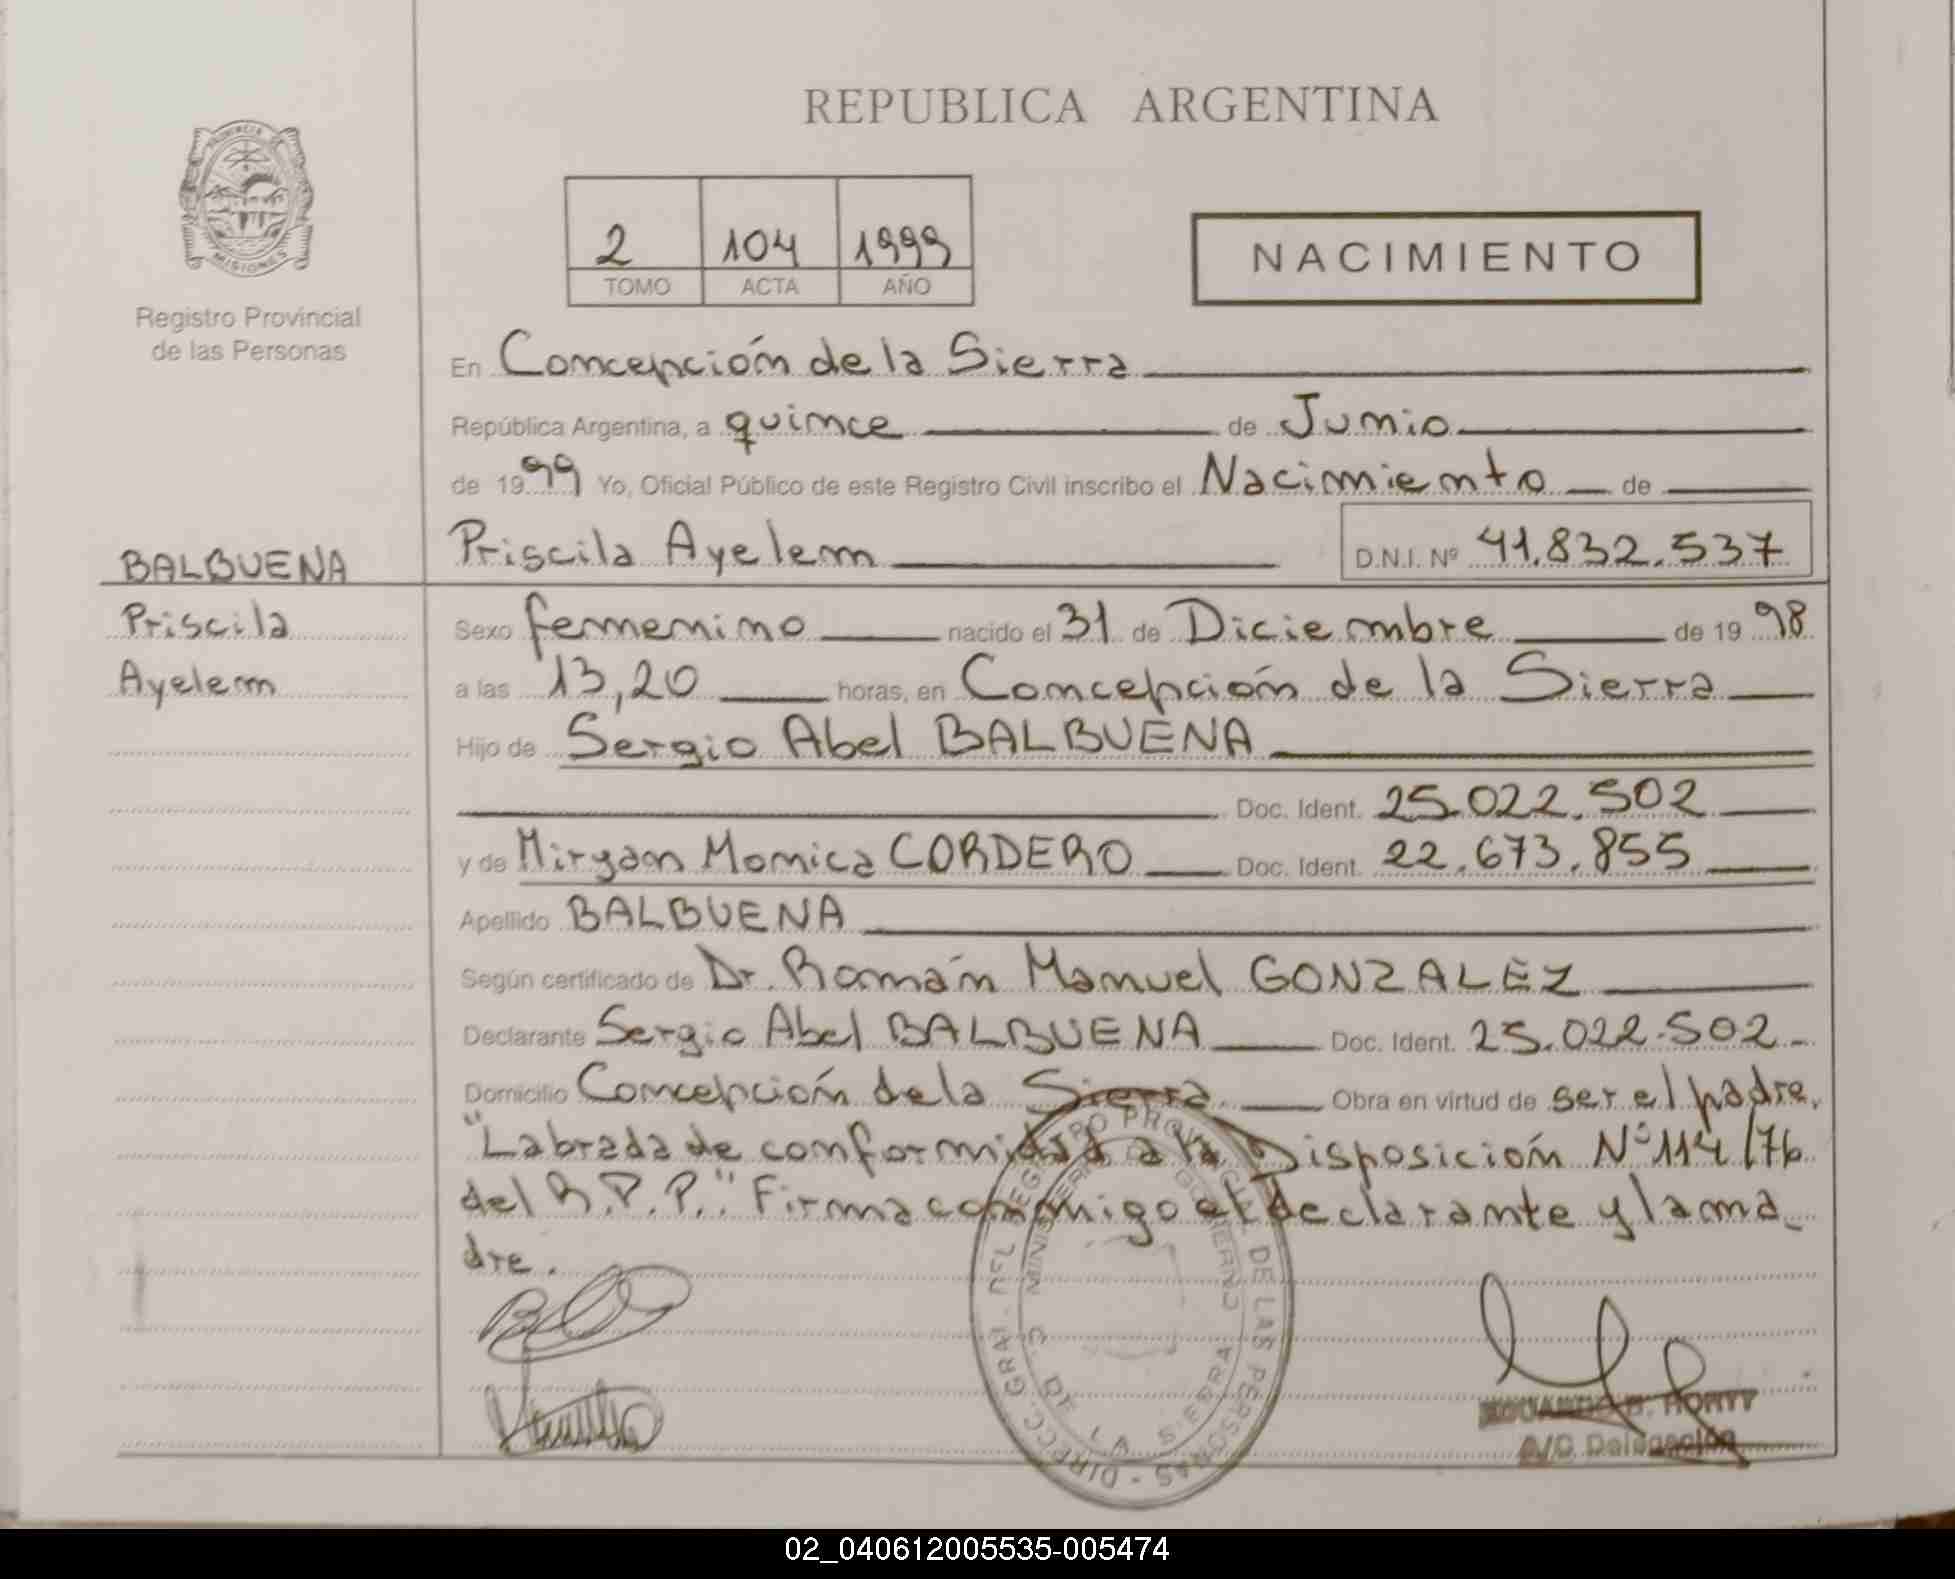 REPUBLICA ARGENTINA
PROVINCIA DE
MISIONES
Registro Provincial
de las Personas
2 104 1999
TOMO ACTA AÑO
NACIMIENTO
En Concepción de la Sierra
República Argentina, a quince de Junio
de 1999 Yo, Oficial Público de este Registro Civil inscribo el Nacimiento de
BALBUENA
Priscila
Ayelem
Priscila Ayelem D.N.I. Nº 41.832.537
Sexo femenino nacido el 31 de Diciembre de 1998
a las 13,20 horas, en Concepción de la Sierra
Hijo de Sergio Abel BALBUENA
Doc. Ident. 25.022.502
y de Miryan Monica CORDERO Doc. Ident. 22.673.855
Apellido BALBUENA
Según certificado de Dr. Román Manuel GONZALEZ
Declarante Sergio Abel BALBUENA Doc. Ident. 25.022.502
Domicilio Concepción de la Sierra Obra en virtud de ser el padre.
"Labrada de conformidad a la Disposición Nº 114/76
del R.P.P." Firma conmigo el declarante y la ma
dre.
REGISTRO PROVINCIAL DE LAS PERSONAS
MINISTERIO GOBIERNO
DE LA SIERRA
A/C Delegación
02_040612005535-005474